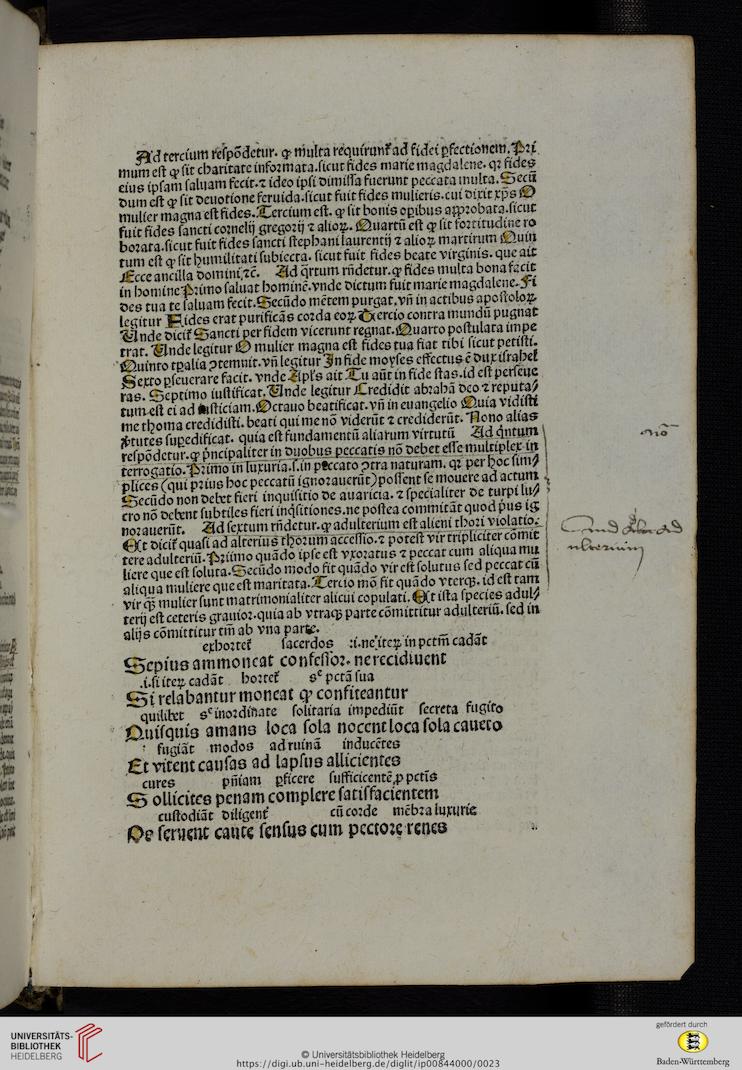 Ad tercium respõdetur. ꝙ multa requirunt̃ ad fidei ꝑfectionem. Pri
mum est ꝙ sit charitate informata. sicut fides marie magdalene. qꝛ fides
eius ipsam saluam fecit. ⁊ ideo ipsi dimissa fuerunt peccata multa. Secũ
dum est ꝙ sit deuotione feruida. sicut fuit fides mulieris. cui dixit xp̃s O
mulier magna est fides. Tercium est. ꝙ sit bonis opibus approbata. sicut
fuit fides sancti cornelij gregorij ⁊ alioꝝ. Quartũ est ꝙ sit fortitudine ro
borata. sicut fuit fides sancti stephani laurentij ⁊ alioꝝ martirum Quin
tum est ꝙ sit humilitati subiecta. sicut fuit fides beate virginis. que ait
Ecce ancilla domini ⁊c̃. Ad q̃rtum rñdetur. ꝙ fides multa bona facit
in homine Primo saluat hominẽ. vnde dictum fuit marie magdalene. Fi
des tua te saluam fecit. Secũdo mẽtem purgat. vñ in actibus apostoloꝝ
legitur Fides erat purificãs corda eoꝝ Tercio contra mundũ pugnat
Unde dicit̃ Sancti per fidem vicerunt regnat. Quarto postulata impe
trat. Unde legitur O mulier magna est fides tua fiat tibi sicut petisti.
Quinto tꝑalia ꝯtemnit. vñ legitur In fide moyses effectus ẽ dux israhel
Sexto ꝑseuerare facit. vnde Apl̃s ait Tu aũt in fide stas. id est perseue
ras. Septimo iustificat. Unde legitur Credidit abrahã deo ⁊ reputa⸗
tum est ei ad iusticiam. Octauo beatificat. vñ in euangelio Quia vidisti
me thoma credidisti. beati qui me nõ viderũt ⁊ crediderũt. Nono alias
ṽtutes suꝑedificat. quia est fundamentũ aliarum virtutũ Ad q̃ntum
respõdetur. ꝙ p̃ncipaliter in duobus peccatis nõ debet esse multiplex in
terrogatio. Primo in luxuria. s. in peccato ꝯtra naturam. qꝛ per hoc sim⸗
plices (qui prius hoc peccatũ ignorauerũt) possent se mouere ad actum
Secũdo non debet fieri inquisitio de auaricia. ⁊ specialiter de turpi lu⸗
cro nõ debent subtiles fieri inq̃sitiones. ne postea committãt quod p̃us ig
norauerũt. Ad sextum rñdetur. ꝙ adulterium est alieni thori violatio.
Et dicit̃ quasi ad alterius thorum accessio. ⁊ potest vir tripliciter cõmit
tere adulteriũ. Primo quãdo ipse est vxoratus ⁊ peccat cum aliqua mu
liere que est soluta. Secũdo modo fit quãdo vir est solutus sed peccat cũ
aliqua muliere que est maritata. Tercio mõ fit quãdo vterqꝫ. id est tam
vir qꝫ̃ mulier sunt matrimonialiter alicui copulati. Et ista species adul⸗
terij est ceteris grauior. quia ab vtraqꝫ parte cõmittitur adulteriũ. sed in
alijs cõmittitur tm̃ ab vna parte.
exhortet̃ sacerdos .i. ne iteꝝ in pctm̃ cadãt
Sepius ammoneat confessor. ne recidiuent
.i. si iteꝝ cadãt hortet̃ sᶜ pctã sua
Si relabantur moneat ꝙ confiteantur
quilibet sᶜ inordinate solitaria impediũt secreta fugito
Quisquis amans loca sola nocent loca sola caueto
fugiãt modos ad ruinã inducẽtes
Et vitent causas ad lapsus allicientes
cures pñiam ꝑficere sufficientẽ ꝓ pctis̃
Sollicites penam complere satisfacientem
custodiãt diligent̃ cũ corde mẽbra luxurie
Ne seruent caute sensus cum pectore renes
nõ
UNIVERSITÄTS-
BIBLIOTHEK
HEIDELBERG
© Universitätsbibliothek Heidelberg
https://digi.ub.uni-heidelberg.de/diglit/ip00844000/0023
gefördert durch
Baden-Württemberg